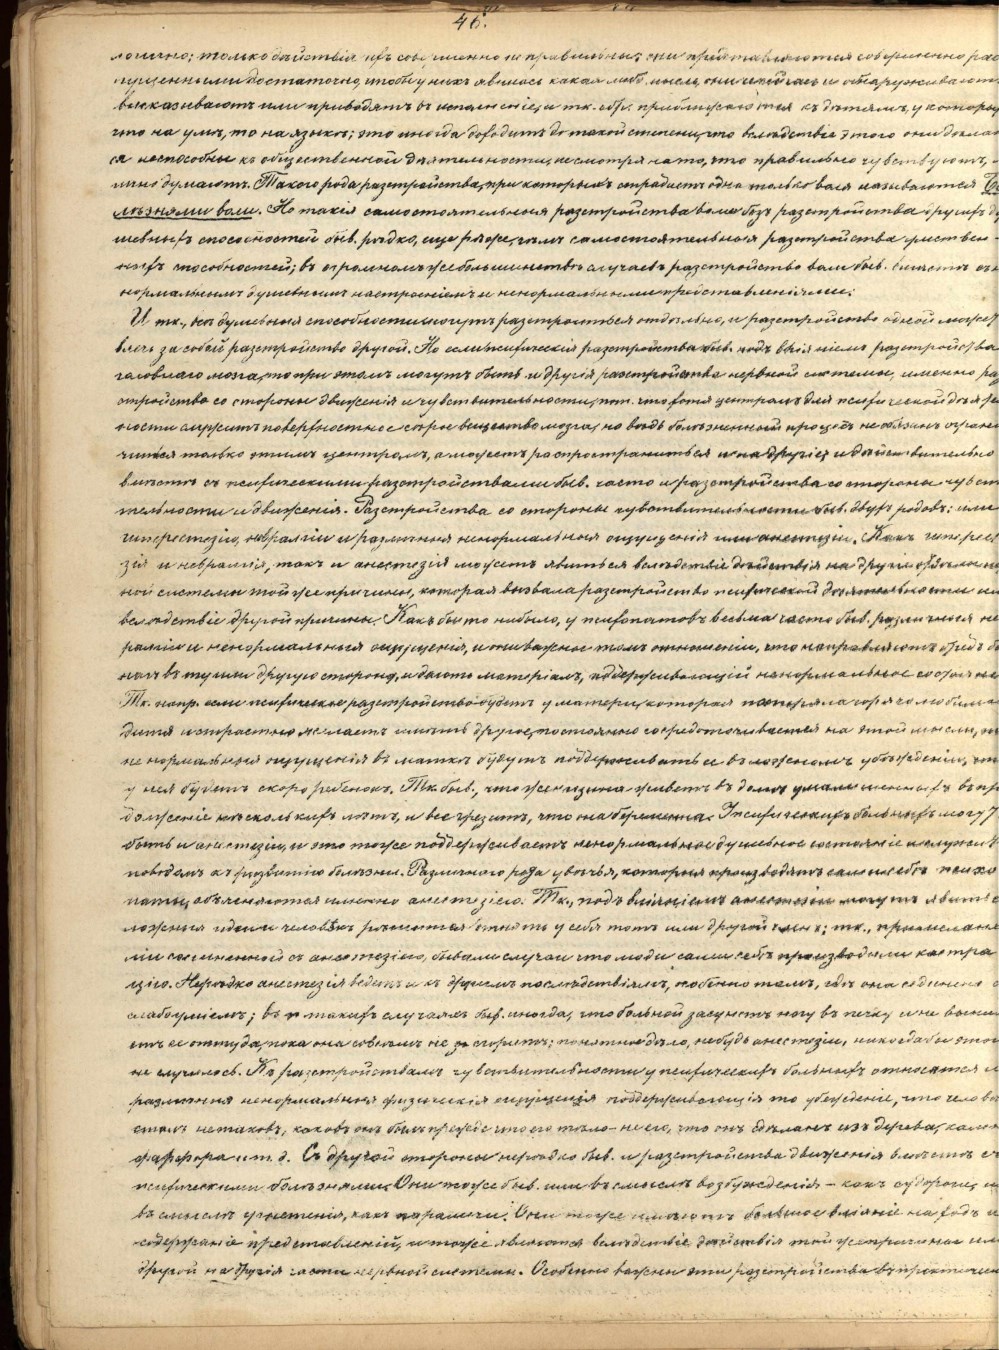 46.
логично; только дѣйствія ихъ совершенно не правильны; они представляются совершенно рас
пущенными: достаточно, чтобы у нихъ явилась какая либо мысль, они сейчасъ и обнаруживаютъ
высказываютъ или приводятъ въ исполненіе, и тк. обр. приближаются къ дѣтямъ, у которы
что на умѣ, то на языкѣ; это иногда доходитъ до такой степени, что вслѣдствіе этого они дѣлаю
ся неспособны ко общественной дѣятельности, не смотря на то, что правильно чувствуютъ,
думаютъ. Такого рода разстройства, при которыхъ страдаетъ одна только воля называются
лѣзнями воли. Но такія самостоятельныя разстройства воли безъ разстройства другихъ ду
шевныхъ способностей быв. рѣдко, еще рѣже, чѣмъ самостоятельныя разстройства умствен-
ныхъ способностей; въ огромномъ же большинствѣ случаевъ разстройство воли быв. вмѣстѣ съ
нормальнымъ душевнымъ настроеніемъ и ненормальными представленіями.
И тк., всѣ душевныя способности могутъ разстроиться отдѣльно, и разстройство одной може
влечь за собой разстройство другой. Но если психическія разстройства быв. подъ вліяніемъ разстройства
головнаго мозга, то при этомъ могутъ быть и другія разстройства нервной системы, именно ра
стройство со стороны движенія и чувствительности, пот. что хотя центромъ для психической дѣяте
ности служитъ поверхностное сѣрое вещество мозга, но вѣдь болѣзненный процессъ не обязанъ ограни
читься только этимъ центромъ, а можетъ распространиться и на другіе; и дѣйствительно
вмѣстѣ съ психическими разстройствами быв. часто и разстройства со стороны чувст
тельности и движенія. Разстройства со стороны чувствительности быв. двухъ родовъ: или
гиперестезіи, невралгіи и различныя ненормальныя ощущенія или анестезіи. Какъ гиперес
зія и невралгія, такъ и анестезія можетъ явиться вслѣдствіе дѣйствія на другіе отдѣлы
ной системы той же причины, которая вызвала разстройство психической дѣятельности
вслѣдствіе другой причины. Какъ бы то ни было, у психопатовъ весьма часто быв. различныя не
ралгіи и ненормальныя ощущенія, и они важны въ томъ отношеніи, что направляютъ бредъ бо
наго въ ту или другую сторону, и даютъ матеріалъ, поддерживающій ненормальное состояніе
Тк. напр. если психическое разстройство будетъ у матери, которая потеряла горячо любима
дитя и страстно желаетъ имѣть другое, постоянно сосредоточивается на этой мысли,
не нормальныя ощущенія въ маткѣ будутъ поддерживать ее въ ложномъ убѣжденіи,
у нея будетъ скоро ребенокъ. Тк. быв., что женщина живетъ въ домѣ умалишенныхъ въ пр
долженіе нѣсколькихъ лѣтъ, и все грезитъ, что она беременна. У психическихъ больныхъ могу
быть и анестезіи, и это тоже поддерживаетъ ненормальное душевное состояніе и служи
поводомъ къ развитію болѣзни. Различнаго рода увѣчья, которыя производятъ сами себѣ психо
паты, объясняются именно анестезіею. Тк., подъ вліяніемъ анестезіи могутъ явить
ложныя идеи и человѣкъ рѣшается отнять у себя тотъ или другой членъ; тк.,
соединенной съ анестезіею, бывали случаи что люди сами себѣ производили кастра
цію. Нерѣдко анестезія ведетъ и къ другимъ послѣдствіямъ, особенно тамъ, гдѣ она соединена
слабоуміемъ; въ такихъ случаяхъ быв. иногда, что больной засунетъ ногу въ печку и не выни
етъ ее оттуда, пока она совсѣмъ не сгоритъ; понятное дѣло, не будь анестезіи, никогда бы этого
не случилось. Къ разстройствамъ чувствительности у психическихъ больныхъ относятся и
различныя ненормальныя физическія ощущенія поддерживающія то убѣжденіе, что челов
сталъ не таковъ, каковъ онъ былъ прежде что его тѣло - не его, что онъ сдѣланъ изъ дерева, камн
фарфора и т. д. Съ другой стороны нерѣдко быв. и разстройства движенія вмѣстѣ с
психическими болѣзнями. Они тоже быв. или въ смыслѣ возбужденія - какъ судороги,
въ смыслѣ угнетенія, какъ параличи. Они тоже имѣютъ большое вліяніе на ходъ и
содержаніе представленій, и тоже являются вслѣдствіе дѣйствія той же причины
другой на другія части нервной системы. Особенно важны эти разстройства въ практичес